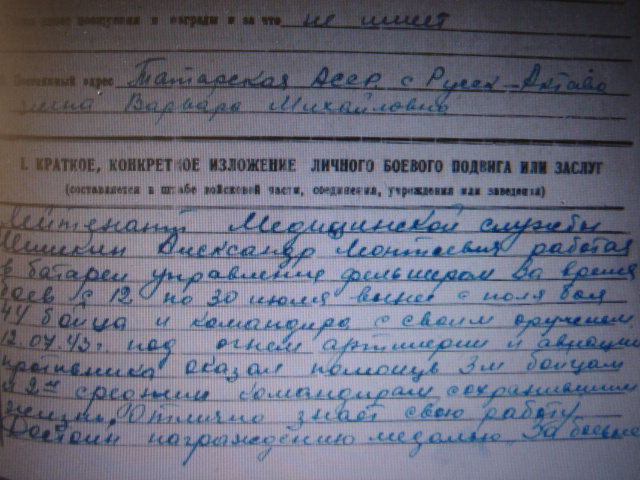 поощрения и награды и за что не имеет
адрес Татарская Асср с Русск-Актаво
жена Варвара Михайловна
I. КРАТКОЕ, КОНКРЕТНОЕ ИЗЛОЖЕНИЕ ЛИЧНОГО БОЕВОГО ПОДВИГА ИЛИ ЗАСЛУГ
(составляется в штабе войсковой части, соединения, учреждения или заведения)
Лейтенант Медицинской службы
Александр Леонтьевич работая
в батареи управления фельшером За время
боев с 12 по 30 июля вынес с поля боя
44 бойца и командира с своим оружием
12.07.43г. под огнем артилерии и авиации
противника оказал помощь 3м бойцам
и 2м средним командирам сохранившим
жизнь. Отлично знает свою работу
Достоин награждению медалью "За боевые